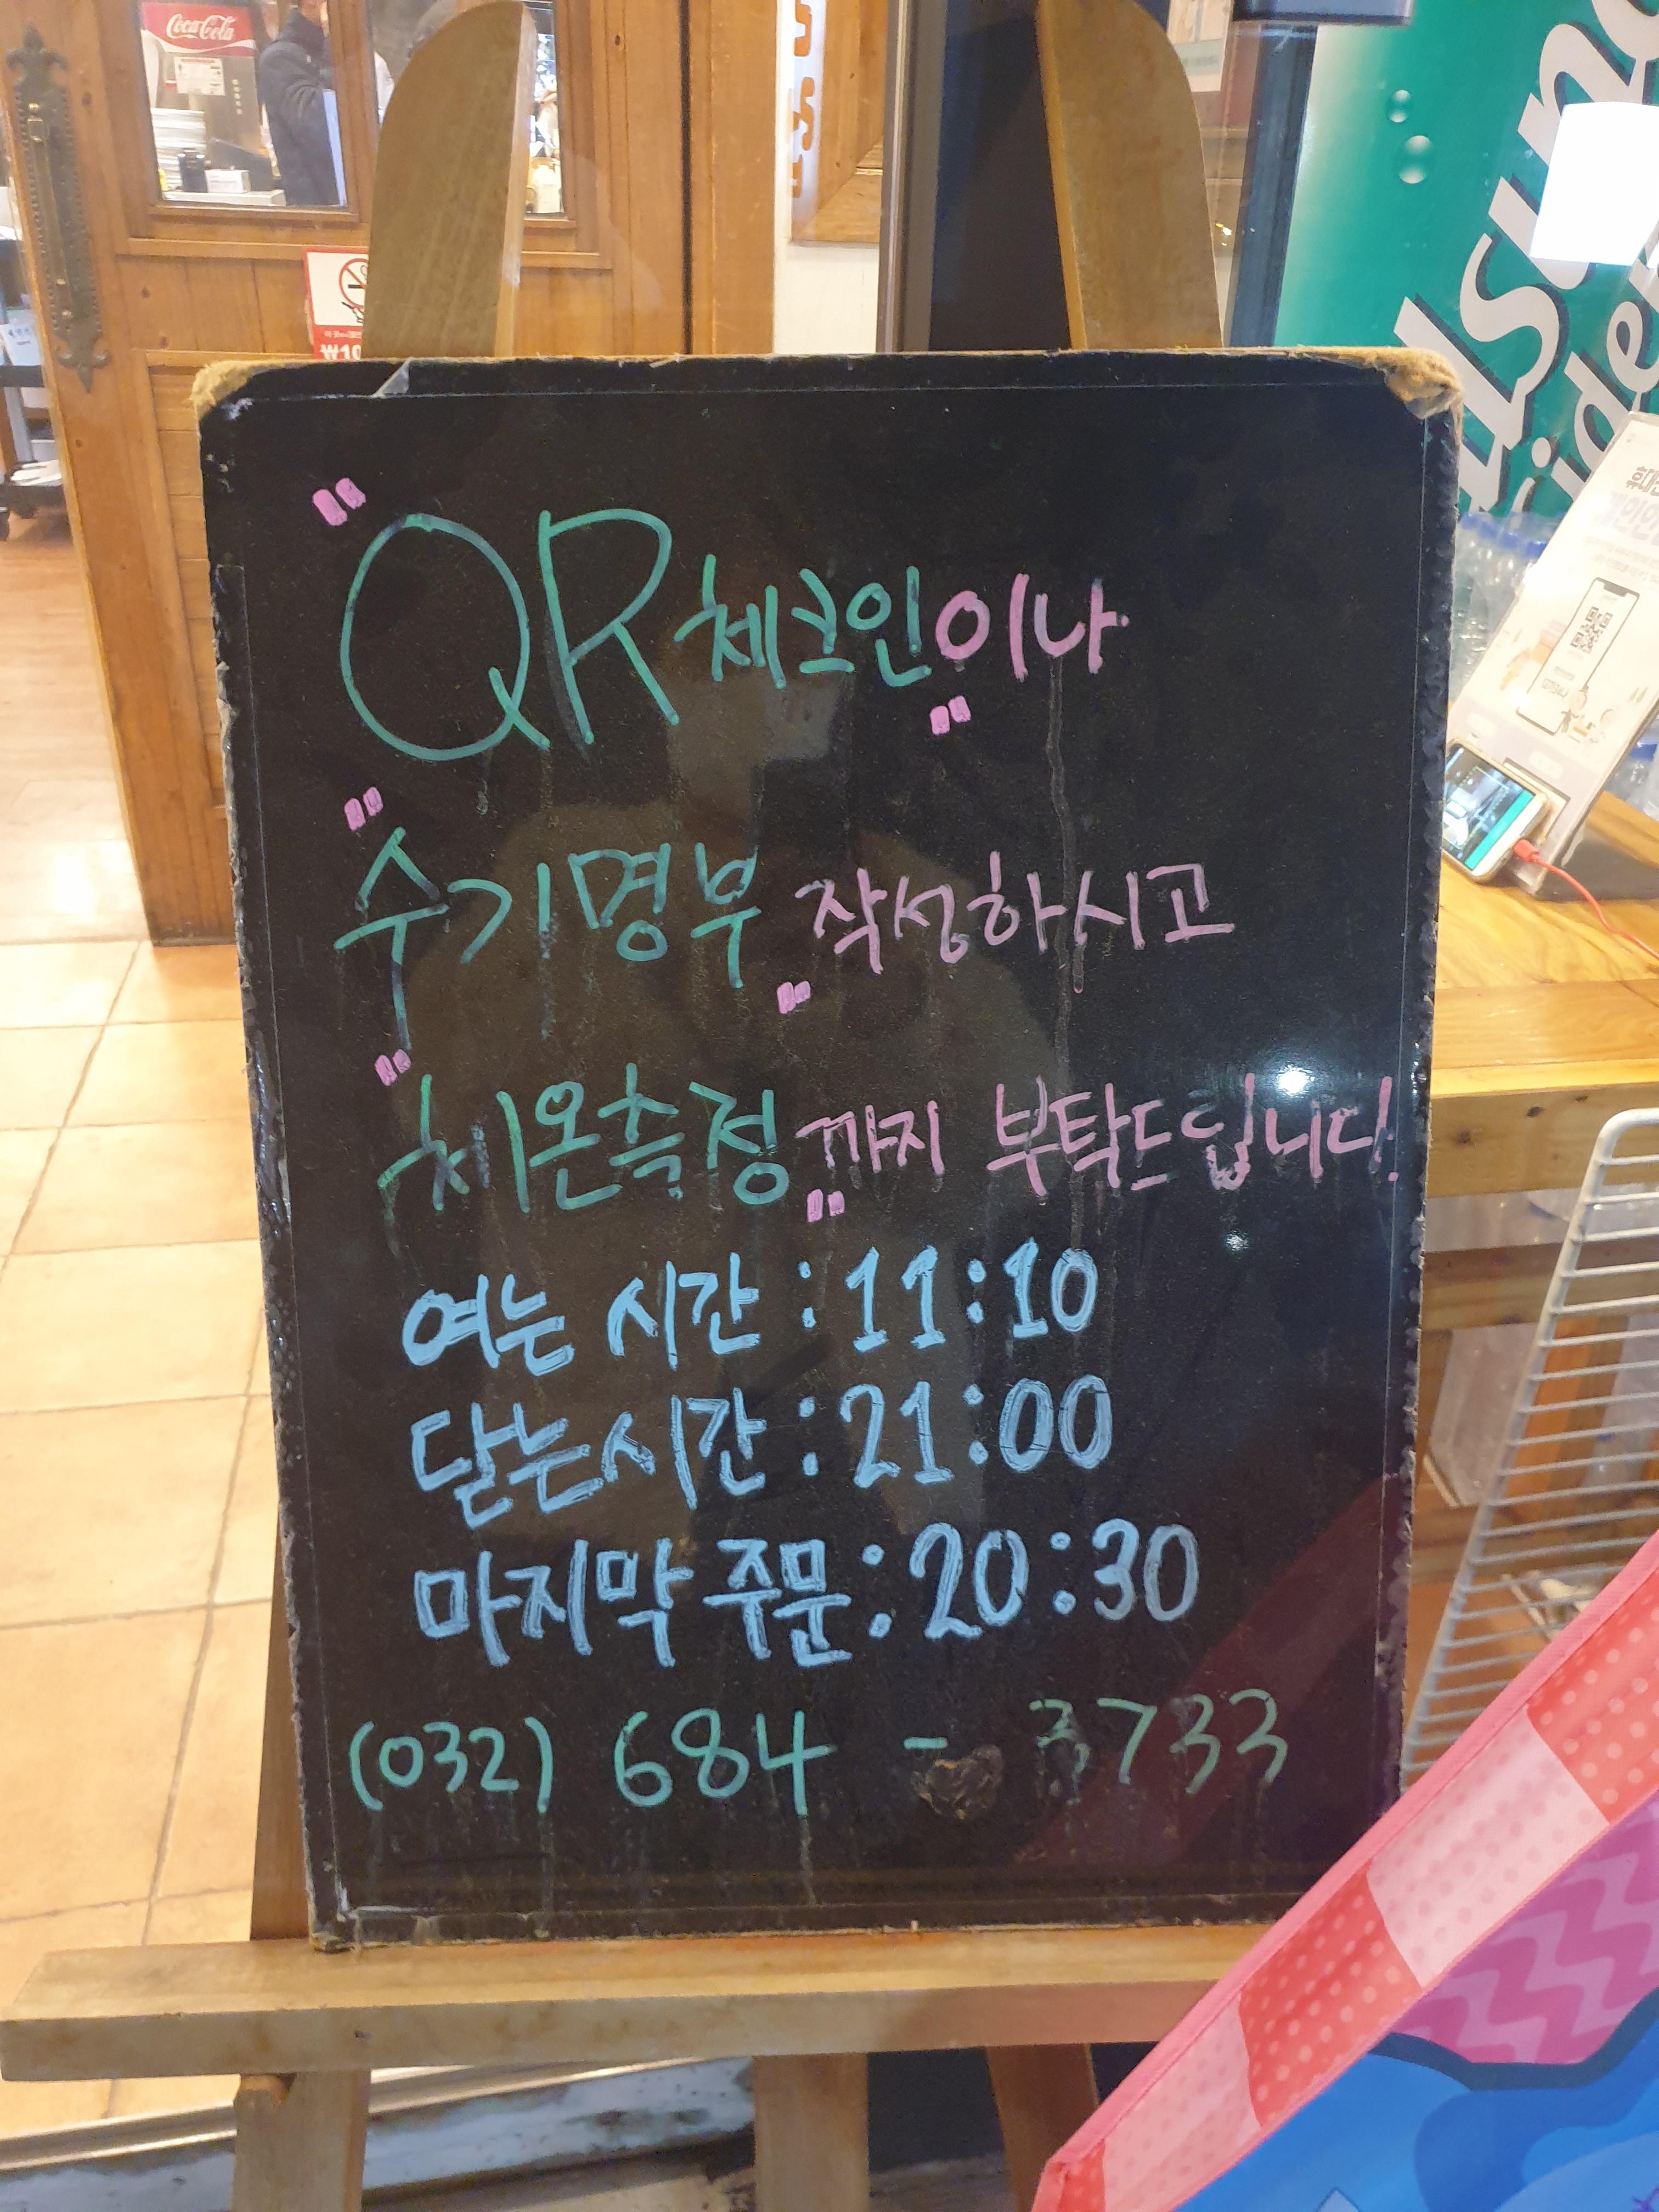 Coca-Cola
"QR 체크인"이나
"수기명부" 작성하시고
"체온측정"까지 부탁드립니다.
여는 시간 : 11:10
닫는시간 : 21:00
마지막 주문 : 20:30
(032) 684 - 3733